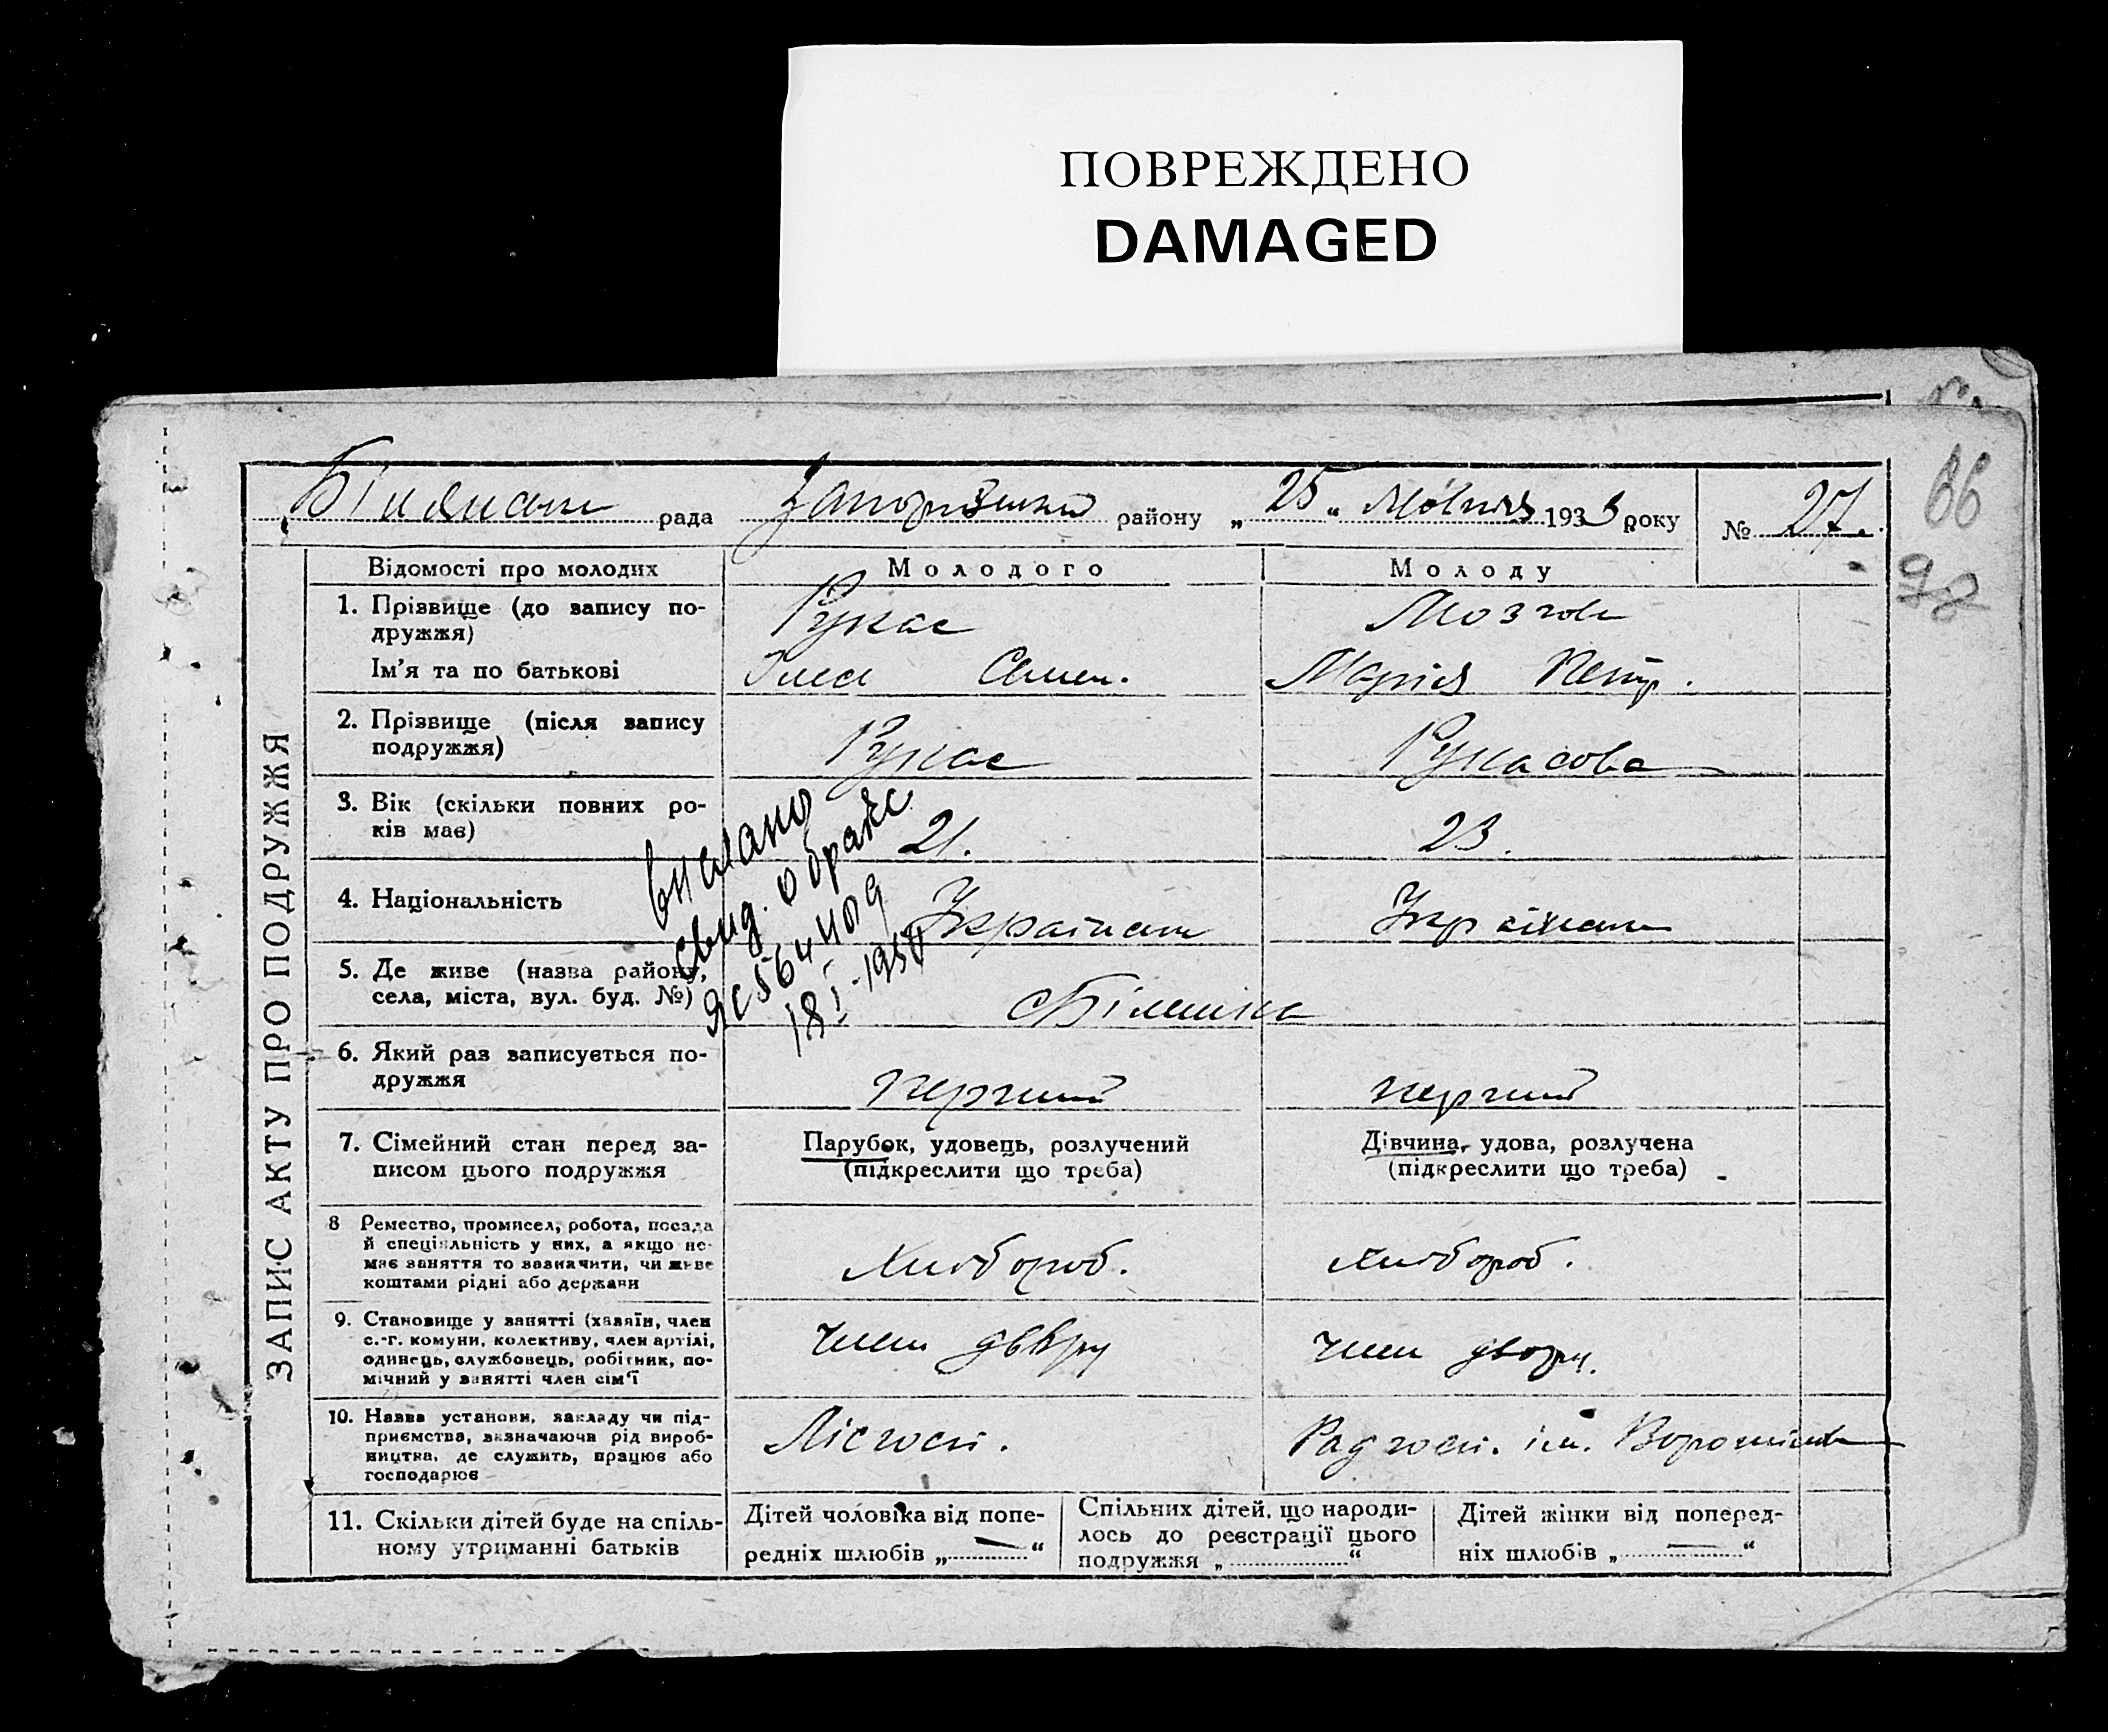 ПОВРЕЖДЕНО
DAMAGED
66
98
рада Запорізький району „25“ Жовтня 1933 року № 27.
ЗАПИС АКТУ ПРО ПОДРУЖЖЯ
Відомості про молодих Молодого Молоду
1. Прізвище (до запису по-
дружжя)
Рукас Мозгова
Ім'я та по батькові Семен. Марія Петр.
2. Прізвище (після запису
подружжя)
Рукас Рукасова
3. Вік (скільки повних ро-
ків має)
21. 23.
4. Національність Українець Українка
5. Де живе (назва району,
села, міста, вул. буд. №)
6. Який раз записується по-
дружжя
перший перший
7. Сімейний стан перед за-
писом цього подружжя
Парубок, удовець, розлучений
(підкреслити що треба)
Дівчина, удова, розлучена
(підкреслити що треба)
8 Ремество, промисел, робота, посада
й спеціяльність у них, а якщо не-
має заняття то зазначити, чи живе
коштами рідні або держави
хлібороб. хлібороб.
9. Становище у занятті (хазяїн, член
с.-г. комуни, колективу, член артілі,
одинець, службовець, робітник, по-
мічний у занятті член сім'ї
член двору член двору.
10. Назва установи, закладу чи під-
приємства, зазначаючи рід вироб-
ництва, де служить, працює або
господарює
Лісгосп. Радгосп. ім. Ворошилова
11. Скільки дітей буде на спіль-
ному утриманні батьків
Дітей чоловіка від попе-
редніх шлюбів „—“
Спільних дітей, що народи-
лось до реєстрації цього
подружжя „ “
Дітей жінки від поперед-
ніх шлюбів „—“
выслано
свид. о браке